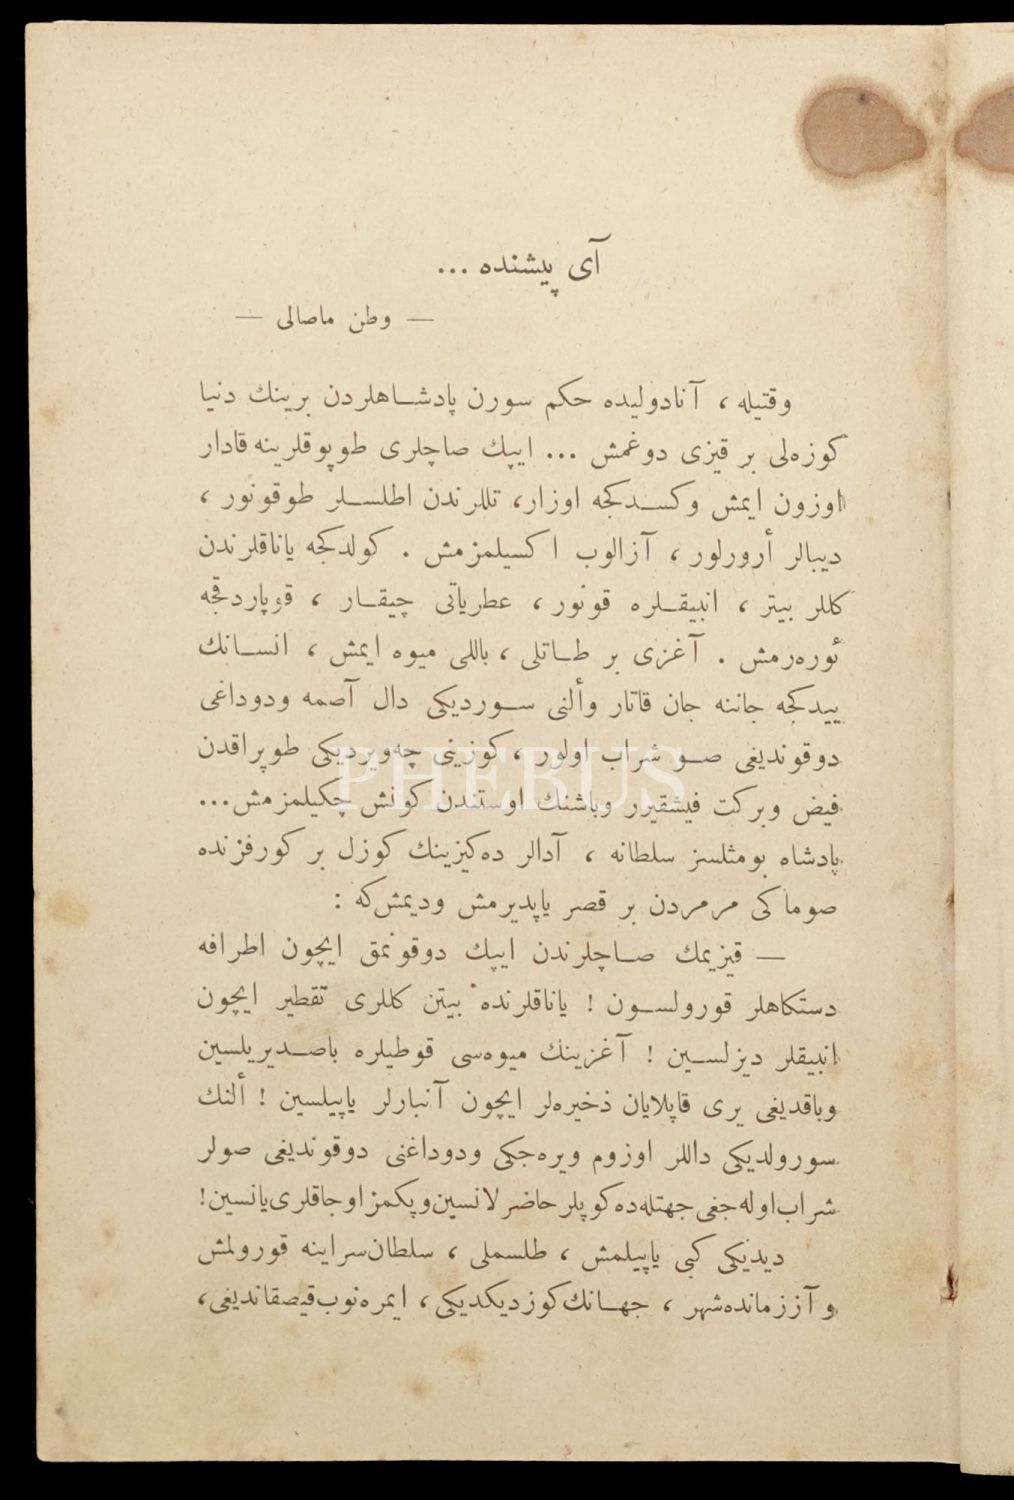 آی پیشنده ...
— وطن ماصالی —
وقتیله ، آنادولیده حکم سورن پادشاهلردن برینك دنیا
کوزه‌لی بر قیزی دوغمش ... ایپك صاچلری طوپوقلرینه قادار
اوزون ایمش وکسدکجه اوزار، تللرندن اطلسلر طوقونور ،
دیبالر أرورلور ، آزالوب اکسیلمزمش . کولدکجه یاناقلرندن
کللر بیتر ، انبیقلره قونور ، عطریاتی چیقار ، قوپاردقجه
ئوره‌رمش . آغزی بر طاتلی ، باللی میوه ایمش ، انسانك
ییدکجه جاننه جان قاتار وألنی سوردیکی دال آصمه ودوداغی
دوقوندیغی صو شراب اولور ، کوزینی چه‌ویردیکی طوپراقدن
فیض وبرکت فیشقیرر وباشنك اوستندن کونش چکیلمزمش...
پادشاه بومثلسز سلطانه ، آدالر ده‌کیزینك کوزل بر کورفزنده
صوماکی مرمردن بر قصر یاپدیرمش ودیمش‌که :
— قیزیمك صاچلرندن ایپك دوقونمق ایچون اطرافه
دستکاهلر قورولسون ! یاناقلرنده بیتن کللری تقطیر ایچون
انبیقلر دیزلسین ! آغزینك میوه‌سی قوطیلره باصدیریلسین
وباقدیغی یری قاپلایان ذخیره‌لر ایچون آنبارلر یاپیلسین ! ألنك
سورولدیکی داللر اوزوم ویره‌جکی ودوداغنی دوقوندیغی صولر
شراب اوله‌جغی جهتله‌ده کوپلر حاضرلانسین وپکمز اوجاقلری یانسین!
دیدیکی کبی یاپیلمش ، طلسملی ، سلطان سراینه قورولمش
وآززمانده شهر ، جهانك کوزدیکدیکی، ایمره‌نوب قیصقاندیغی،
PHEBUS